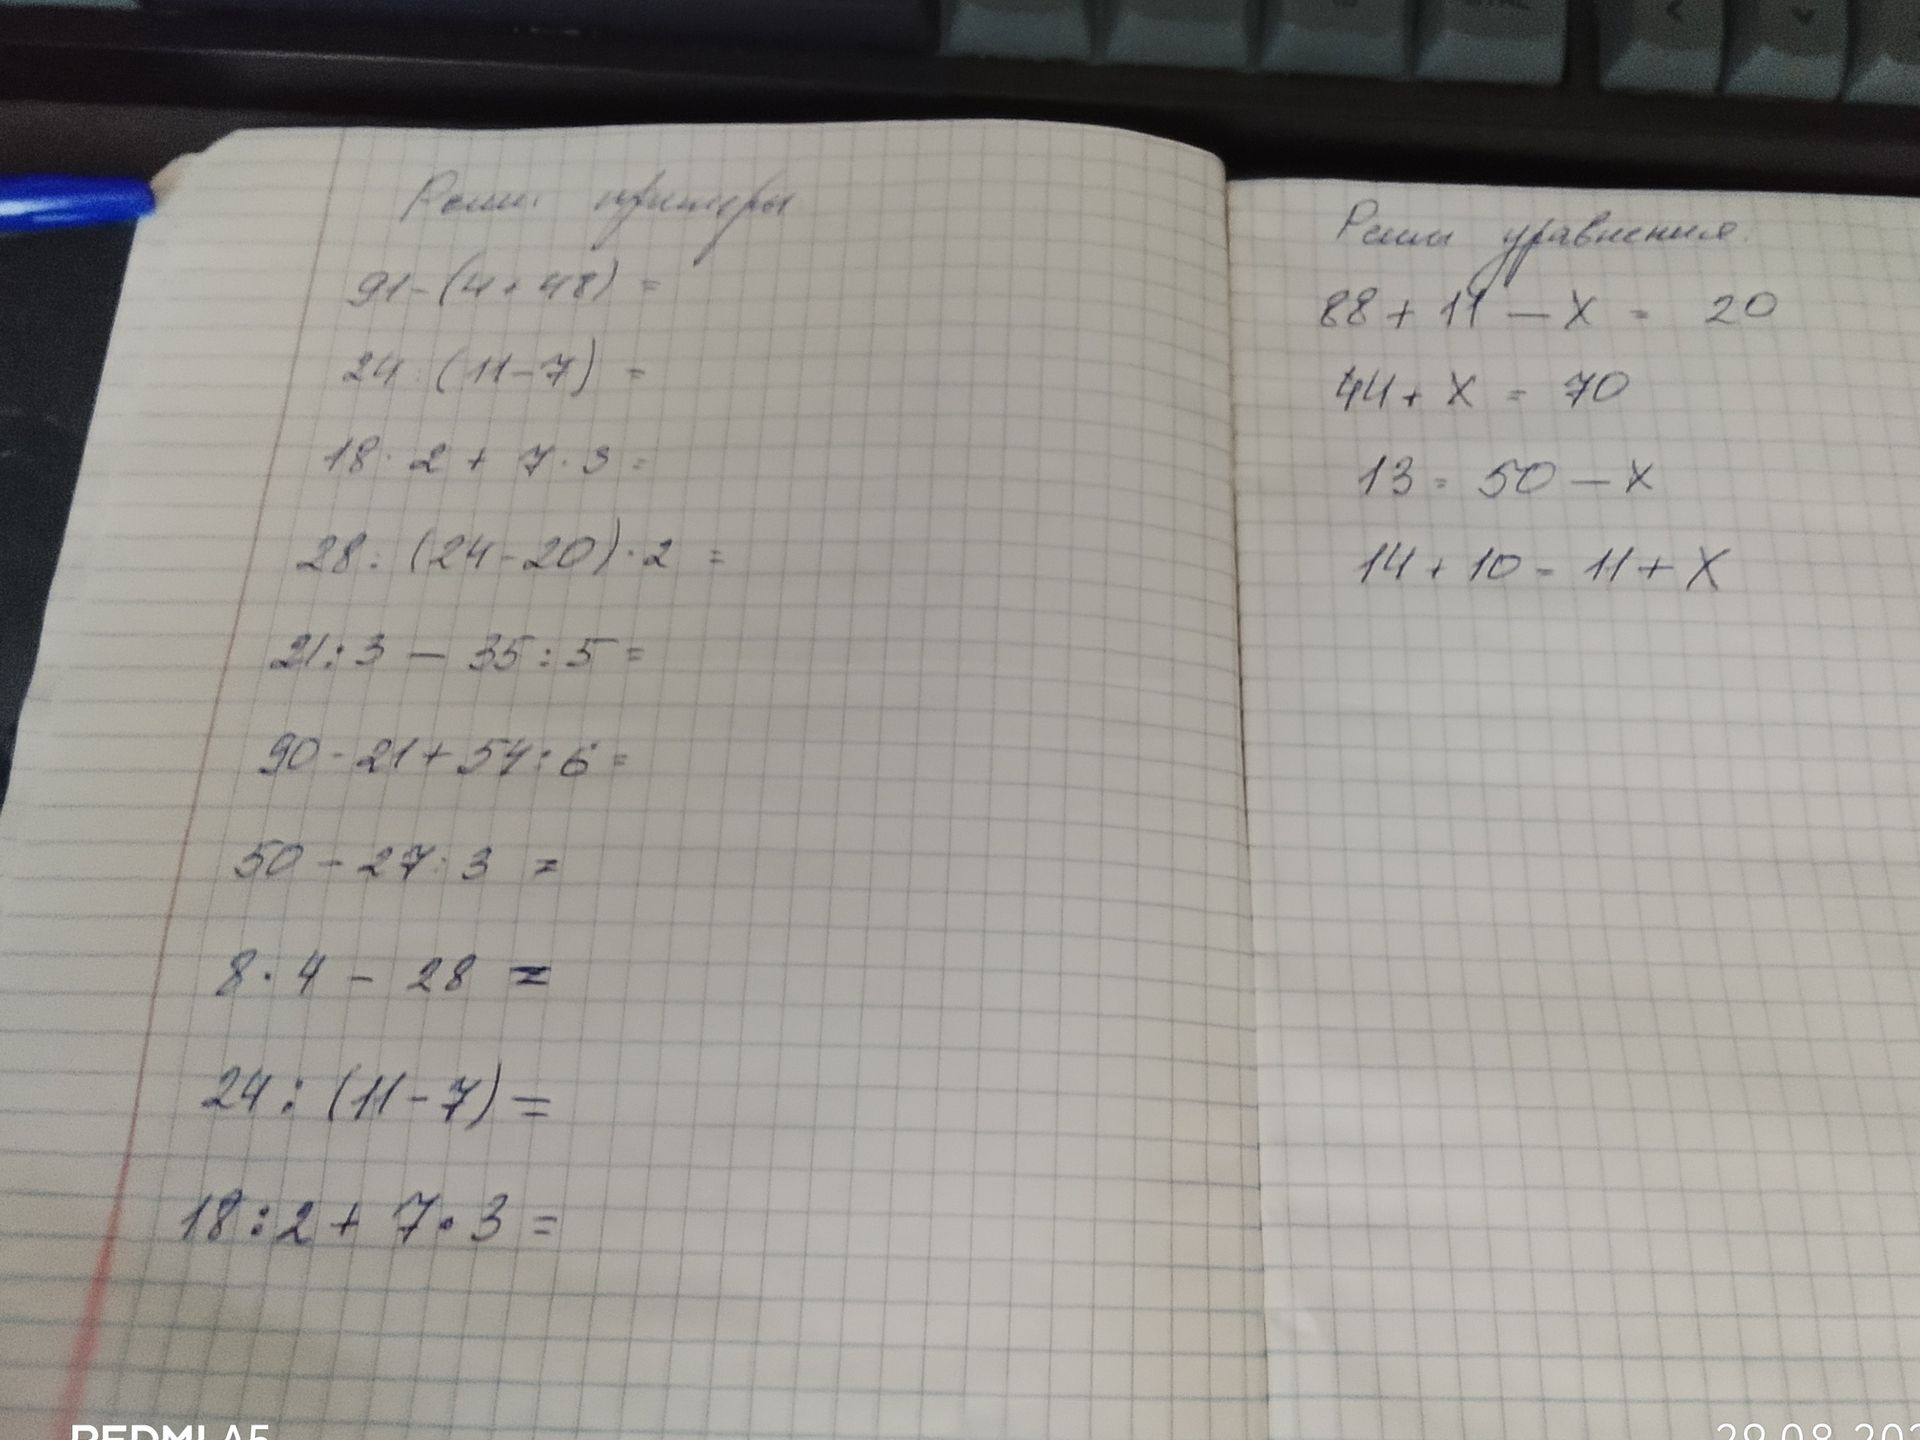 Реши примеры
91-(4+48) =
24:(11-7) =
18· 2 + 7·3 =
28: (24-20)·2 =
21:3 — 35:5 =
90-21+54:6 =
50-27:3 =
8·4 - 28 =
24: (11-7) =
18:2+ 7·3 =
Реши уравнения.
88+11 — X = 20
44+ X = 70
13 = 50 — X
14+10 = 11+X
REDMI A5
29.08.202